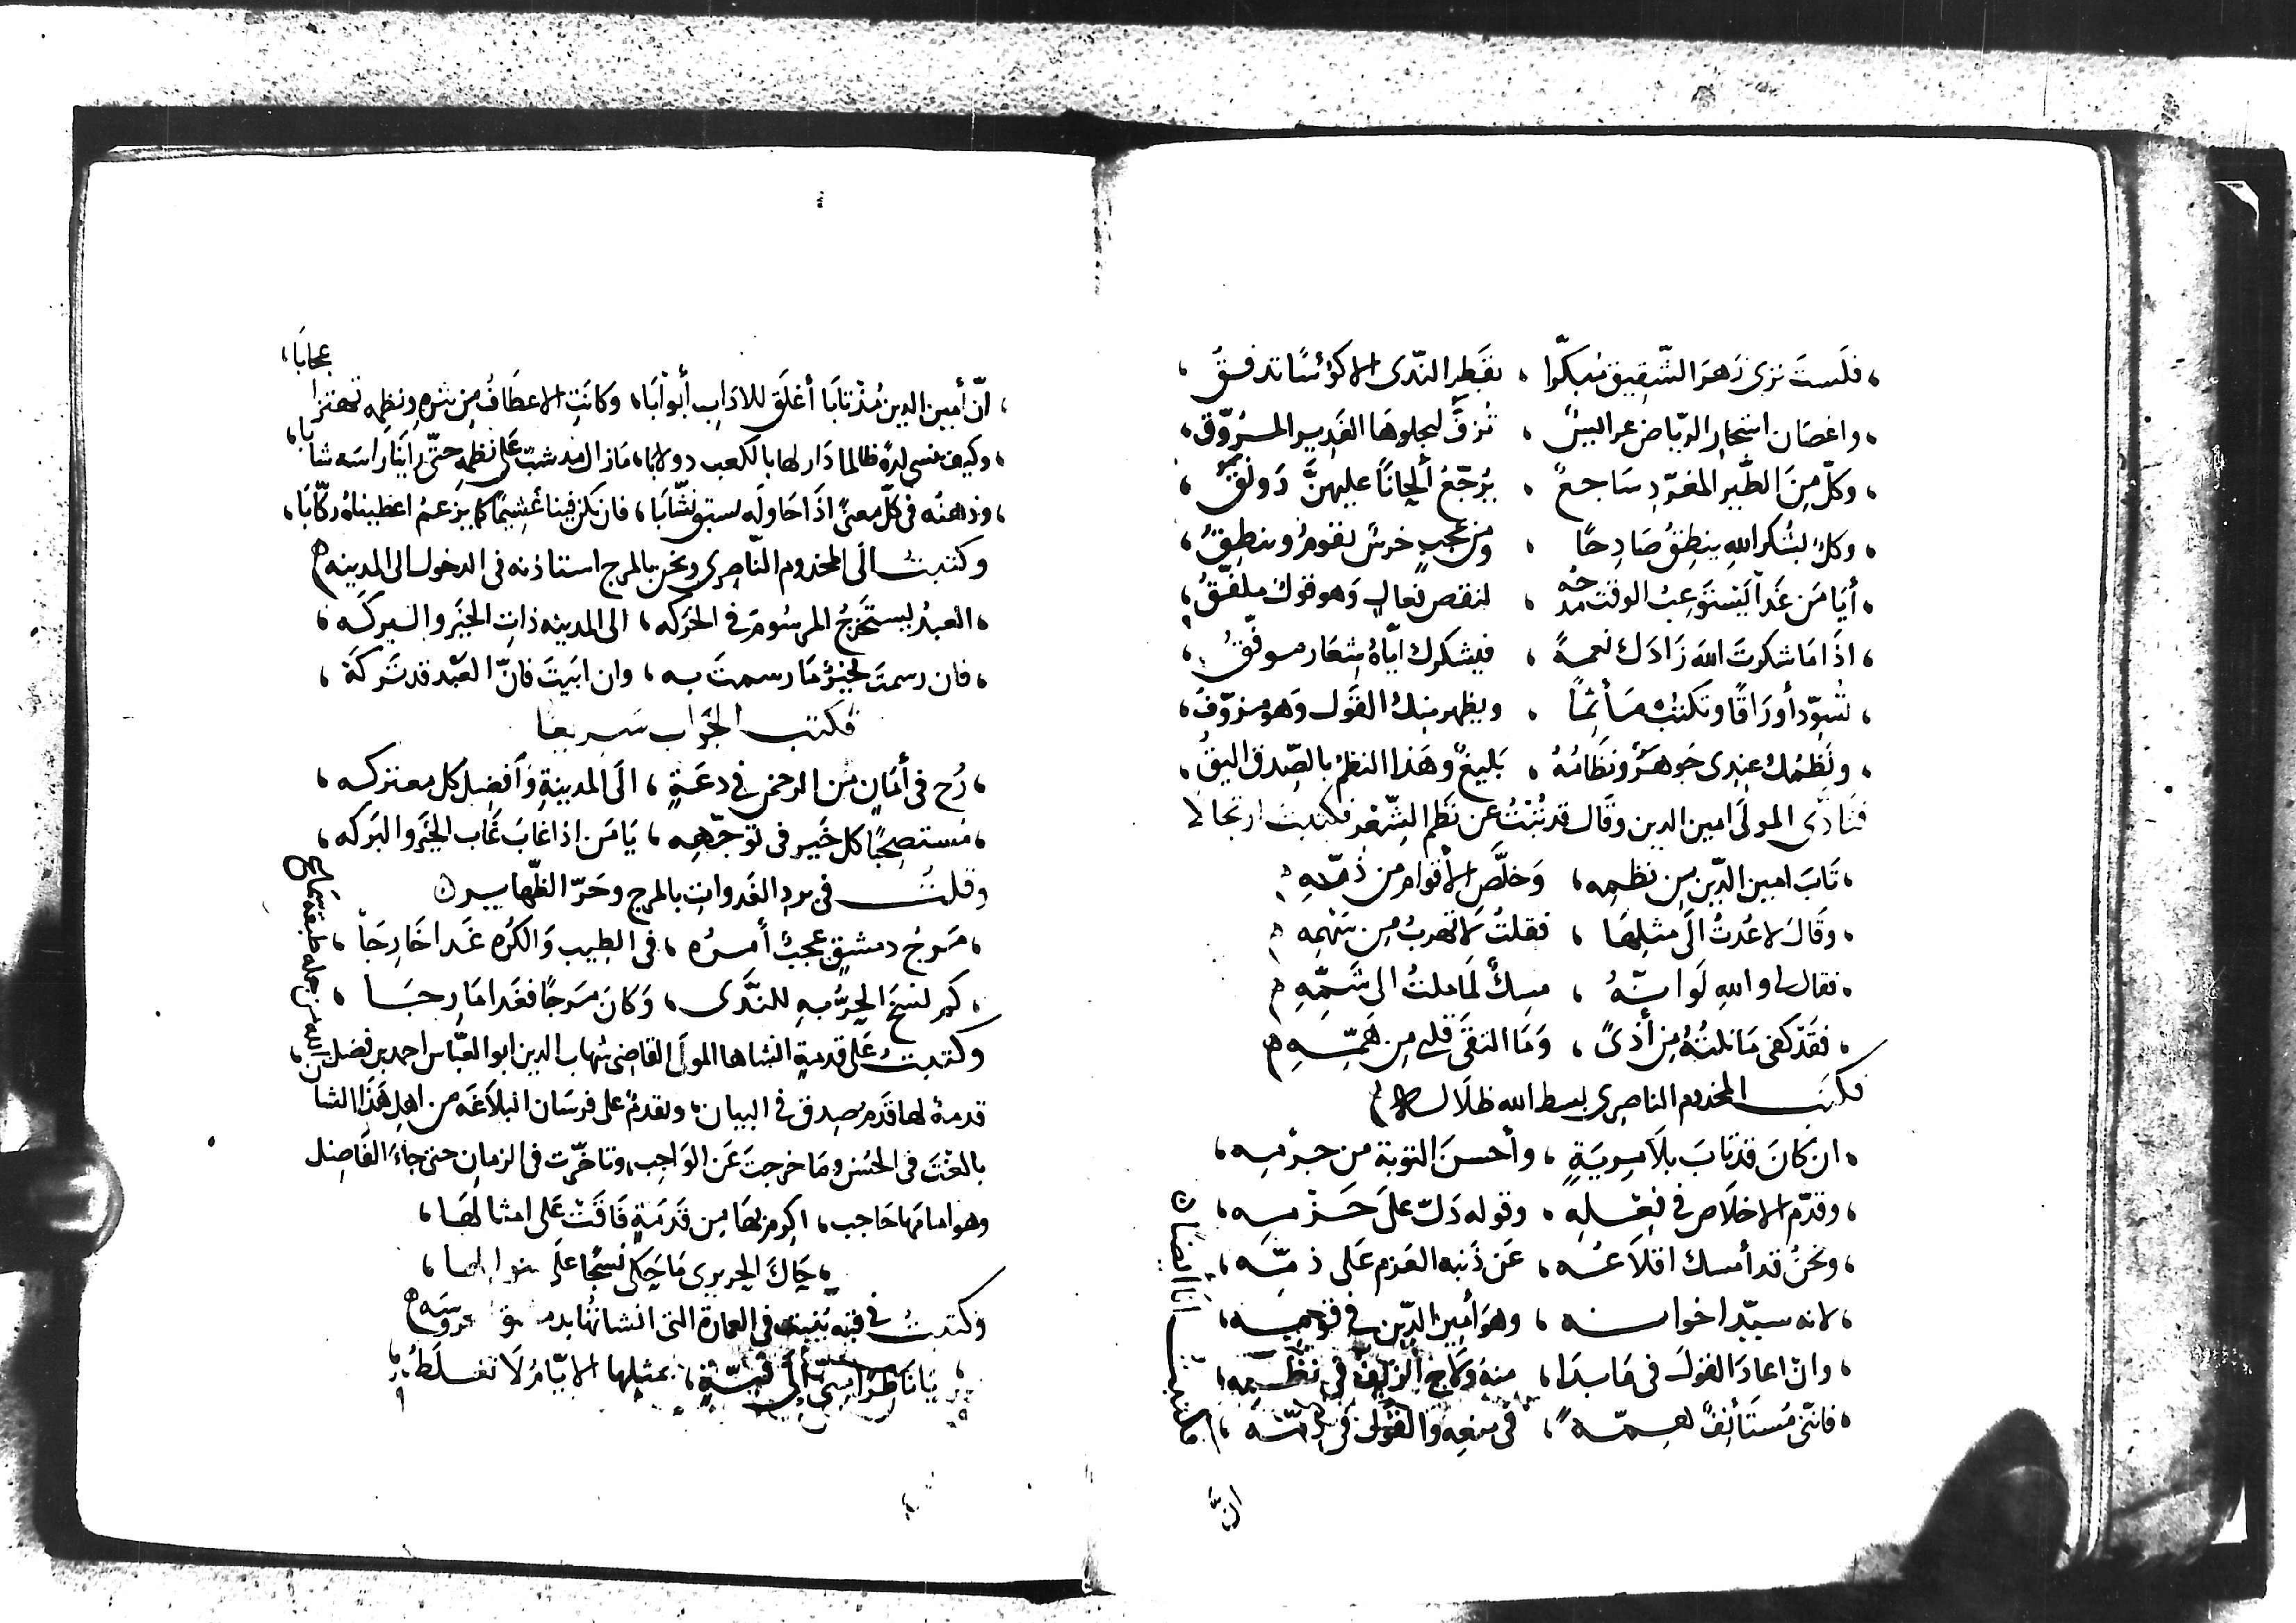 فلست ترى زهر الشقيق مبكّرا ، بقطر الندى الا كؤسًا تدفق ،
واغصان اشجار الرياض عرائس ، تُزفّ ليجلوها الغدير المروّق ،
وكلّ مِنَ الطّير المغرّد سَاجعٌ ، يُرجّعُ ألحانًا عليهنَّ رَونق ،
وكل بشكر الله ينطقُ صَادِحًا ، ومن عجبٍ خرسٌ تقوم وتنطِقُ ،
أيا مَن غَدا يَستَوعِبُ الوقت مدحُه ، لنقص فعالٍ وَهو قولٌ ملفّقُ ،
اذا ما شكرتَ الله زَادَك نعمةً ، فيشكرك ايّاهُ شعَار موفّقُ ،
تسوّد أورَاقًا وتكتبُ مأثمًا ، ويظهر منكَ القَول وَهو مزوّق ،
ونَظمُك عِندى جَوهَرٌ ونظَامُهُ ، بَليغٌ وهَذا النظمُ بالصِّدق اليقُ ،
فتأذّى المولَى امين الدين وقَال قد تُبتُ عن نَظم الشِّعر فكتبت ارتجالا
تَابَ امين الدّين من نظمِه ، وَخلَّصَ الأقوام من ذمّه
وقَالَ لا عُدتُ الَى مثلِهَا ، فقلتُ لا تهربُ مِن سَهمِه
فقال لى والله لَو انّهُ ، مسكٌ لَمَا ملتُ الى شَمّهِ
فقَد كفى مَا نلتُهُ مِن أذىً ، وَمَا التقَى قلبى مِن هَمّهِ
فكتب المخدوم الناصرى بسط الله ظلاله
ان كَانَ قد تابَ بلَا مِريَةٍ ، وأحسنَ التوبة من جرمه ،
وقدّم الاخلَاص فى فعله ، وقوله دَلّ علَى حَزمه ،
ونحنُ قد أمسك اقلَاعُه ، عَن ذَنبه العَزم عَلى ذمّه ،
لانه سيّد اخوانه ، وهوَ أمِين الدّين فى قومه ،
وان اعادَ القولَ فى مَا بدَا ، منه ولاح الزيف فى نظمه ،
فانّنى مُستَأنفٌ لعمّه ، فى منعه والقول فى ذمّه ،
فكتبت أنا ايضًا
انّ
انّ أمين الدين مُذ تابَا أغلَق للادَاب أبوابَا ، وكانَت الاعطَافُ مِن نثره ونظمِه تهتز اعجابَا ،
وكيف ننسى لهُ ظالما دَار لها بالكعب دولابا ، مَا زال مذ شبّ عَلى نظمِه حتّى رأينا راسَه شابا ،
وذهنُه فى كلّ معنىً اذَا حَاولَه يسبق نشّابَا ، فان يكن فينا غَشيمًا كما يزعمُ اعطيناهُ ركّابَا ،
وكتبت الَى المخدوم النّاصرى ونحن بالمرج استاذنه فى الدخول الى المدينه
العبدُ يستَخرجُ المرسُومَ فى الحرَكه ، الى المدينه ذاتِ الخَير والبركَه ،
فان رسمتَ بخيرٍ مَا رسمتَ به ، وان ابَيتَ فانّ العَبد قد تَركَهْ ،
فكتب الجوَاب سَريعَا
رُح فى أمَانٍ من الرحمن فى دعَةٍ ، الَى المدينةِ وَأفضل كل معتركه ،
مُستصحِبًا كل خَيرٍ فى توجّهه ، يَا مَن اذا غابَ غَاب الخَير والبَركه ،
وقلتُ فى برد الغدوات بالمرج وحَرّ الظّهايرِ
مَرج دمشقٍ عجبٌ أمرُه ، فى الطيب والكُره غَدا خَارجَا ،
كم نسخَ الحَرُّ بهِ للنَّدَى ، وَكانَ مَرجًا فغَدا مَارجَا ،
وكتبتُ عَلى قدمةٍ انشاها المولَى القاضى شهاب الدين ابو العبّاس احمد بن فضل الله
قدمةٌ لها قَدَم صِدق فى البيان ، وتقدمٌ على فرسَان البلاغَه من اهل هَذا الشان ،
بالغْتَ فى الحسُن ومَا خرجتَ عَن الوَاجِب ، وتاخّرت فى الزمانِ حتى جَاءَ الفَاضِل
وهو امامَها حَاجب ، اكرِم بهَا مِن قَدمَةٍ فَاقَتْ عَلى امثالهَا ،
حَاكَ الحريرى مَا حَكى نسجًا علَى منوالها ،
وكتبتُ فى قبه بُنيت فى العمارة التى انشاتُها بدمشق
يَا نَاظرًا الَى قبّةٍ ، بمثلها الايّامُ لَا تغلَطُ ،